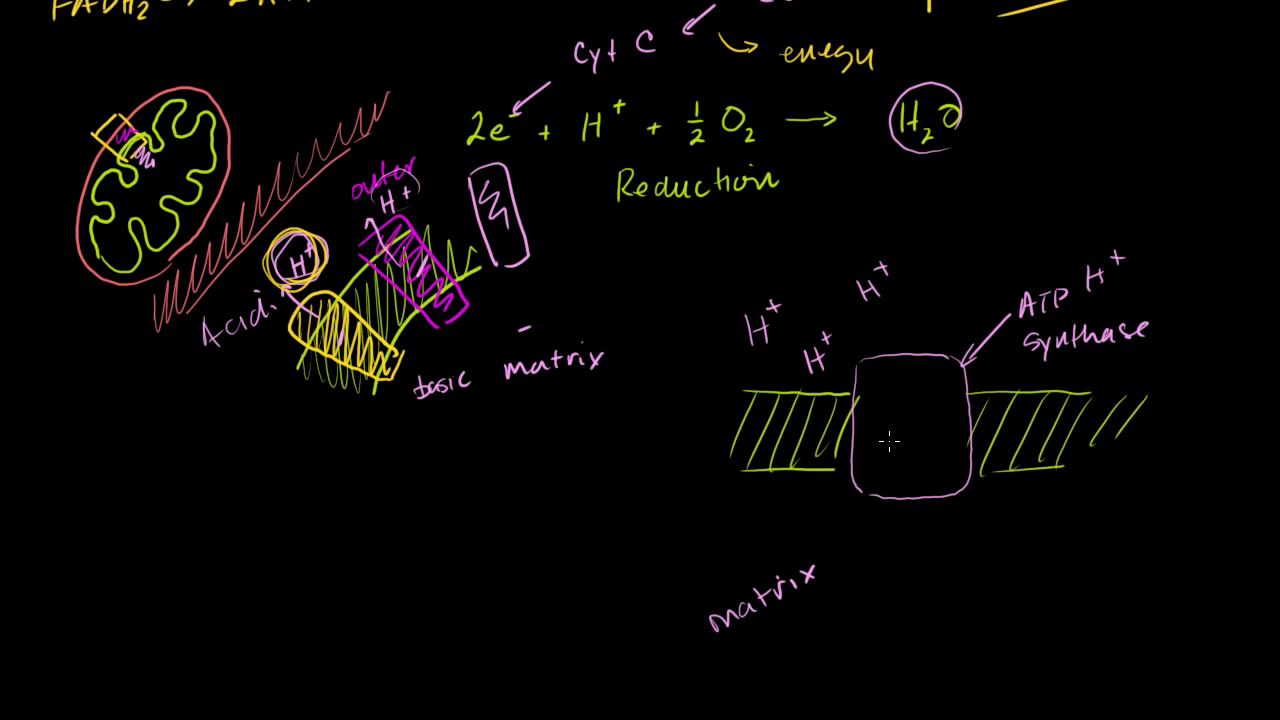 FADH₂
Cyt C
energy
2e⁻ + H⁺ + ½ O₂ → H₂O
Reduction
outer
H⁺
H⁺
Acidi
basic matrix
H⁺
H⁺
H⁺
ATP H⁺
synthase
matrix